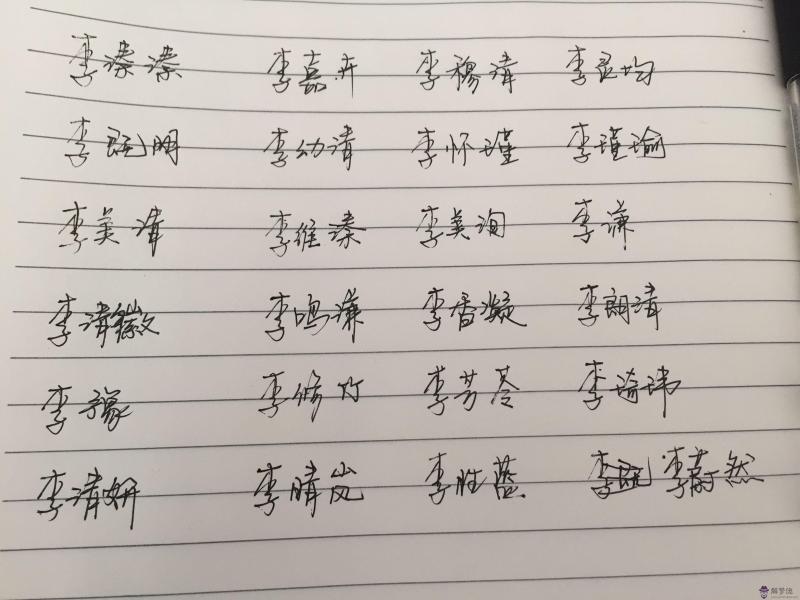 李溱溱 李嘉卉 李穆清 李灵均
李既明 李幼清 李怀瑾 李瑾瑜
李美清 李维溱 李美洵 李谦
李清徽 李鸣谦 李香凝 李朗清
李豫 李修竹 李芳苓 李琦玮
李清妍 李晴岚 李胜蓝 李蔚然
解梦佬